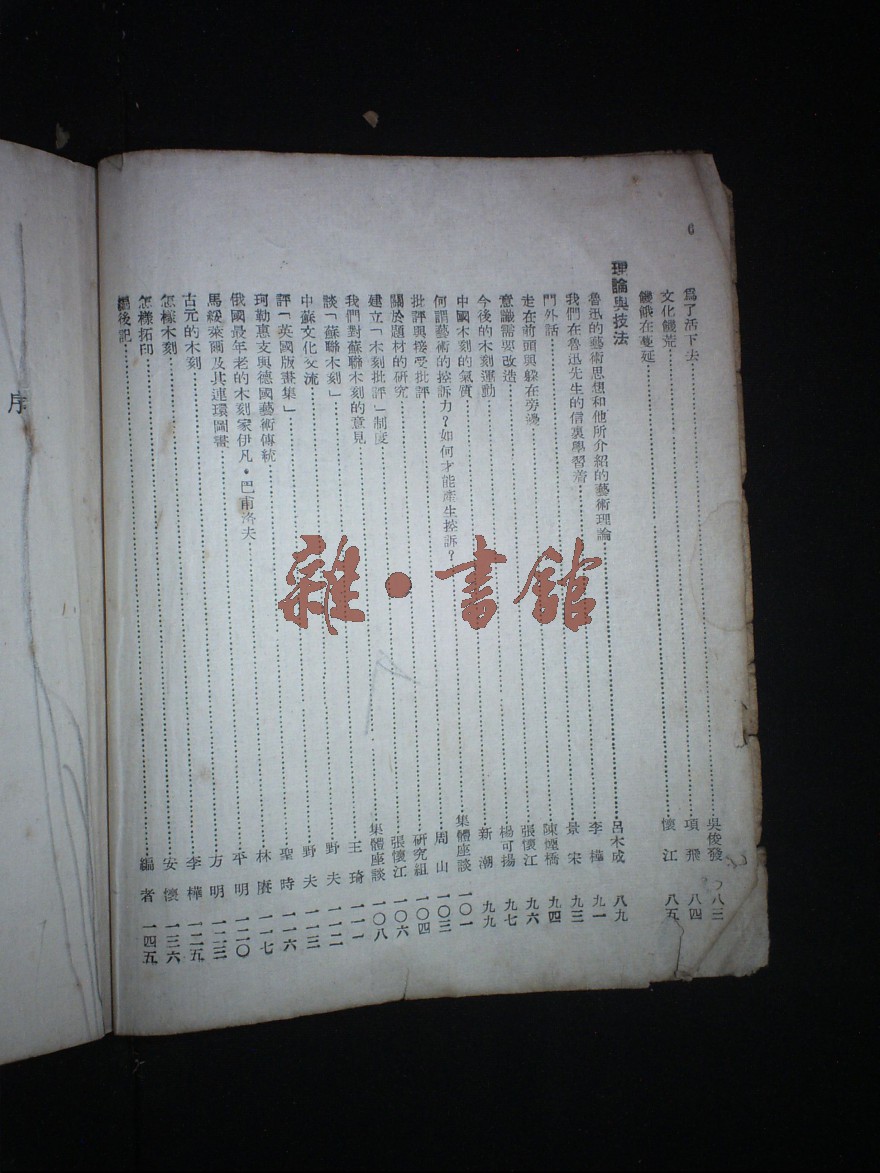 6
為了活下去……吳俊發 八三
文化饑荒……項飛 八四
饑餓在蔓延……懷江 八五
理論與技法
魯迅的藝術思想和他所介紹的藝術理論……呂木成 八九
我們在魯迅先生的信裏學習着……李樺 九一
門外話……景宋 九三
走在前頭與躲在旁邊……陳煙橋 九四
意識需要改造……張懷江 九六
今後的木刻運動……楊可揚 九七
中國木刻的氣質……新潮 九九
何謂藝術的控訴力？如何才能產生控訴？……集體座談 一〇一
批評與接受批評……周山 一〇三
關於題材的研究……研究組 一〇四
建立「木刻批評」制度……張懷江 一〇六
我們對蘇聯木刻的意見……集體座談 一〇八
談「蘇聯木刻」……王琦 一一一
中蘇文化交流……野夫 一一二
評「英國版畫集」……野夫 一一三
珂勒惠支與德國藝術傳統……聖時 一一六
俄國最年老的木刻家伊凡・巴甫洛夫……林賡 一一七
馬綏萊爾及其連環圖畫……平明 一二〇
古元的木刻……方明 一二三
怎樣木刻……李樺 一二五
怎樣拓印……安懷 一三六
編後記……編者 一四五
序
雜・書館